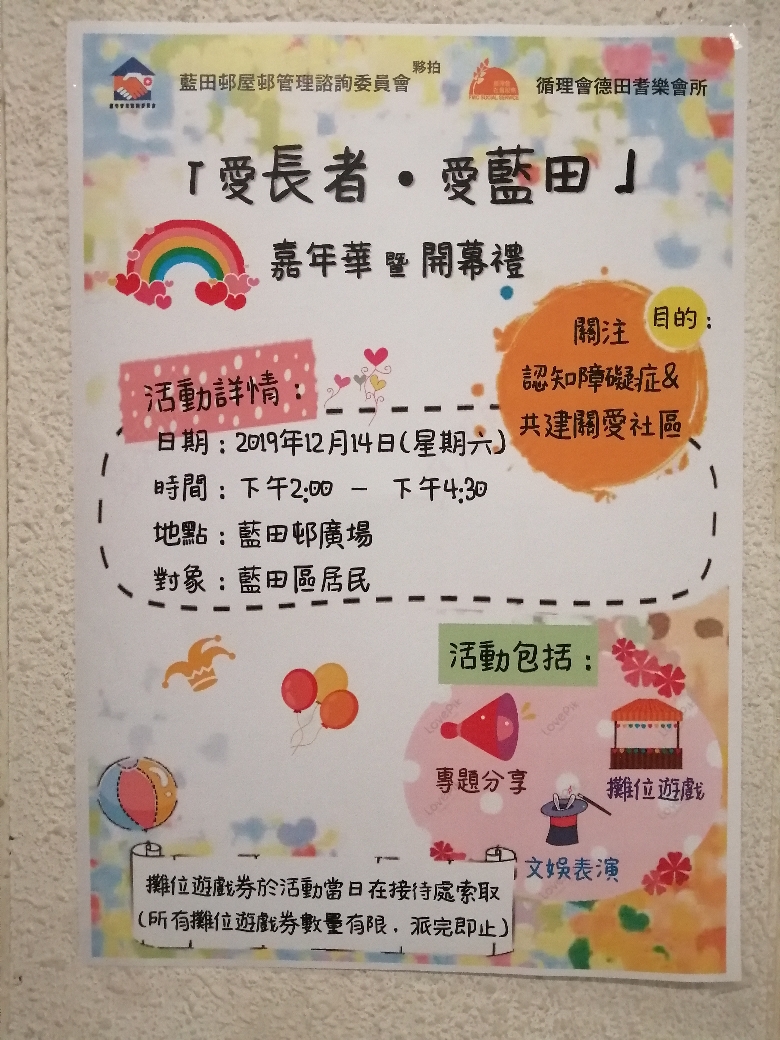 藍田邨屋邨管理諮詢委員會 夥拍 循理會德田耆樂會所
「愛長者・愛藍田」
嘉年華暨開幕禮
目的：
關注
認知障礙症&
共建關愛社區
活動詳情：
日期：2019年12月14日(星期六)
時間：下午2:00 － 下午4:30
地點：藍田邨廣場
對象：藍田區居民
活動包括：
專題分享
攤位遊戲
文娛表演
攤位遊戲券於活動當日在接待處索取
(所有攤位遊戲券數量有限，派完即止)